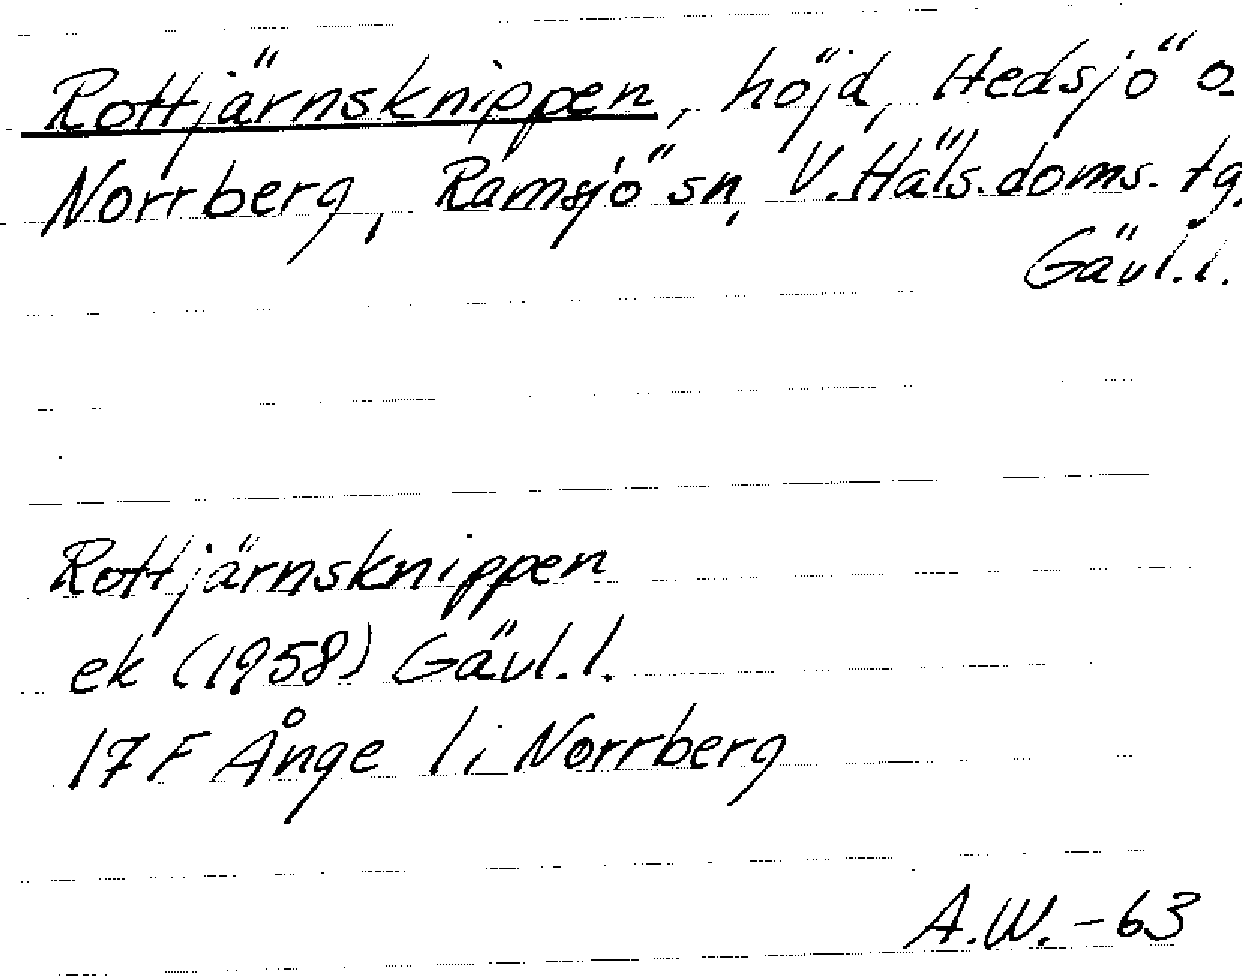 Rottjärnsknippen, höjd, Hedsjö o.
Norrberg, Ramsjö sn, V. Häls. doms. tg,
Gävl. l.
Rottjärnsknippen
ek (1958) Gävl. l.
17 F Ånge 1 i Norrberg
A.W. -63